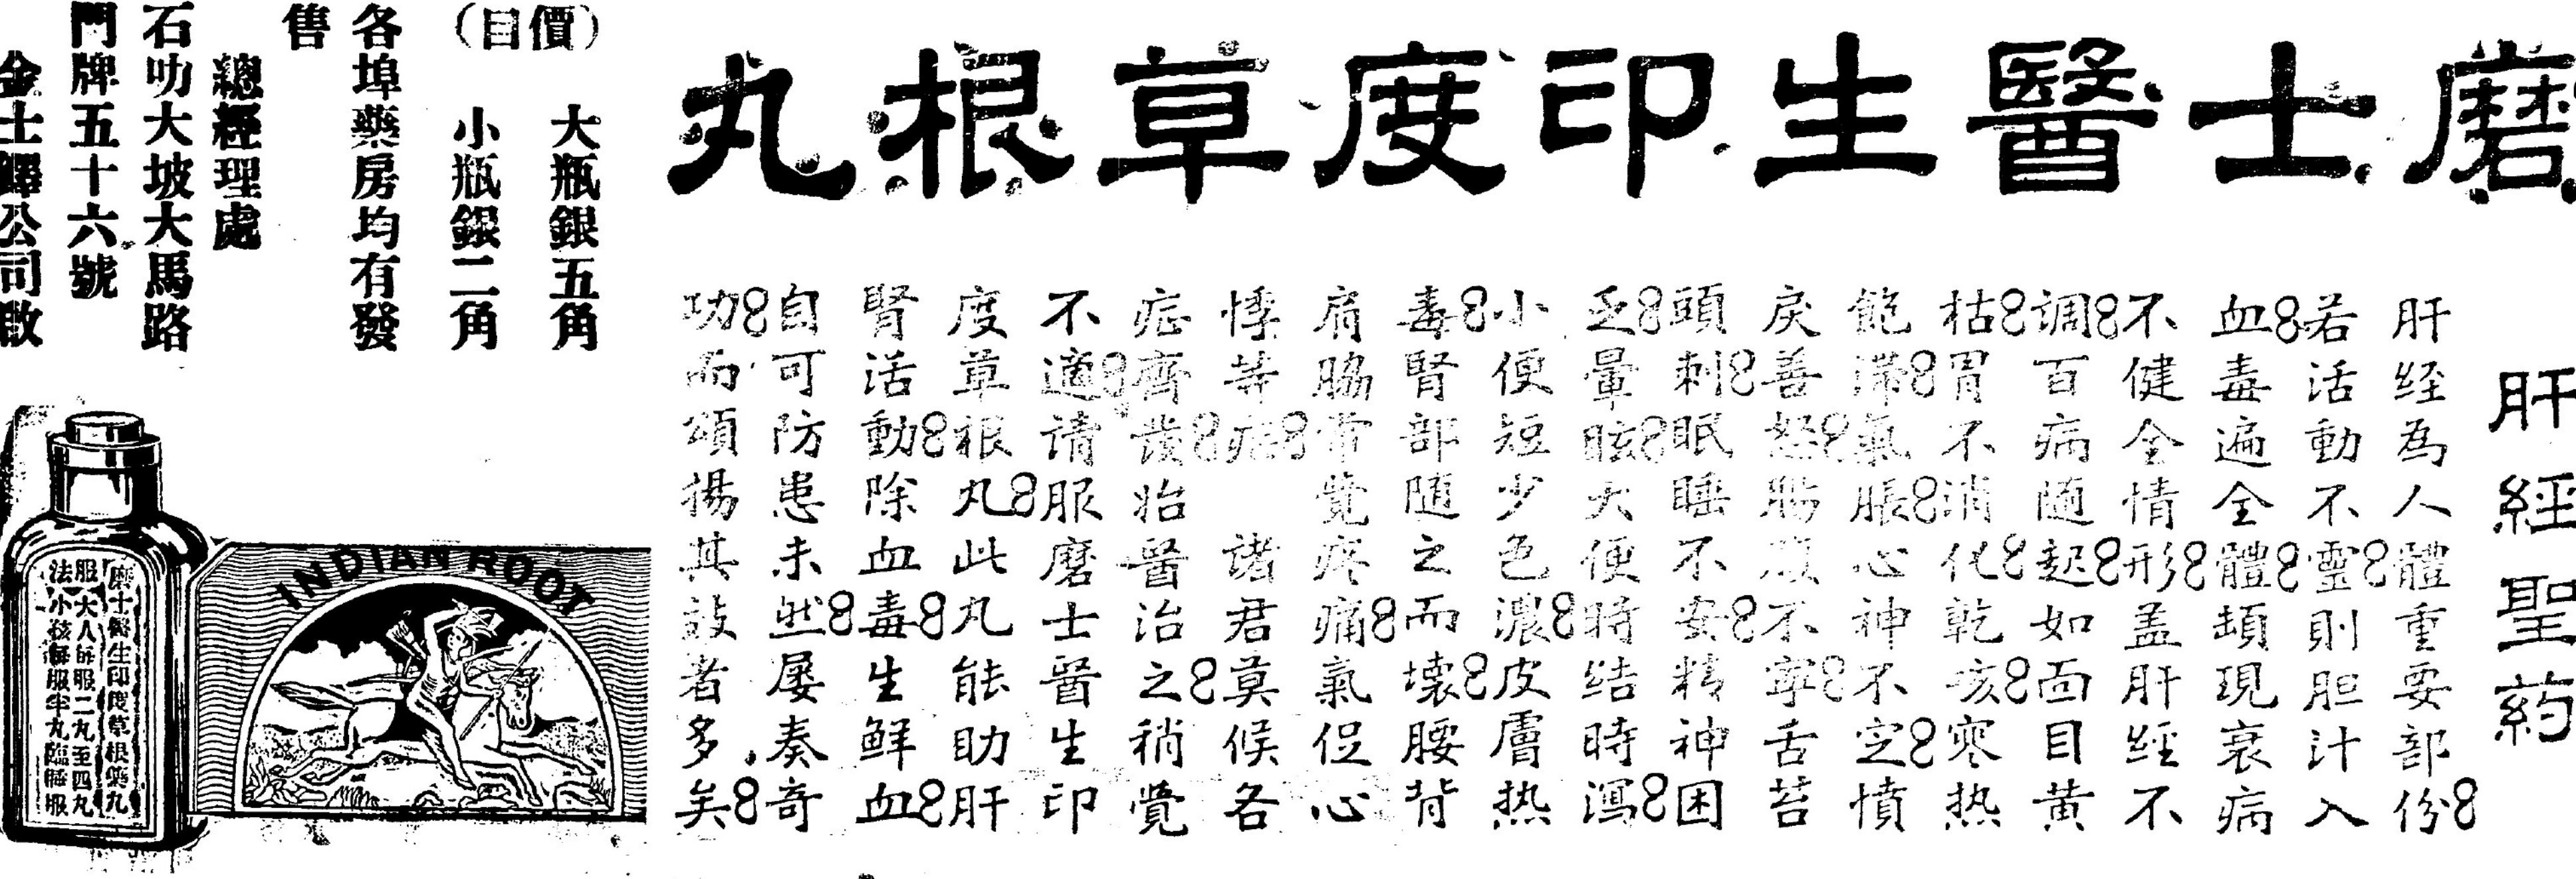 磨士醫生印度草根丸
肝經聖药
肝经為人體重要部份
若活動不靈則胆汁入
血毒遍全體頓現衰病
不健全情形盖肝经不
调百病随起如面目黄
枯胃不消化乾咳寒热
飽滞氣脹心神不定憤
戾善怒腸不寧舌苔
頭刺眠睡不安精神困
乏暈眩大便時结時瀉
小便短少色濃皮膚热
毒腎部随之而壞腰背
肩脇常覺疼痛氣促心
悸等症 諸君莫候各
症齊发始醫治之稍覺
不適请服磨士醫生印
度草根丸此丸能助肝
腎活動除血毒生鲜血
自可防患未然屡奏奇
功而頌揚其效者多矣
(價目)
大瓶銀五角
小瓶銀二角
各埠藥房均有發
售
總經理處
石叻大坡大馬路
門牌五十六號
金士鐸公司啟
INDIAN ROOT
磨士醫生印度草根藥丸
服法
大人每服二丸至四丸
小孩每服半丸臨睡服